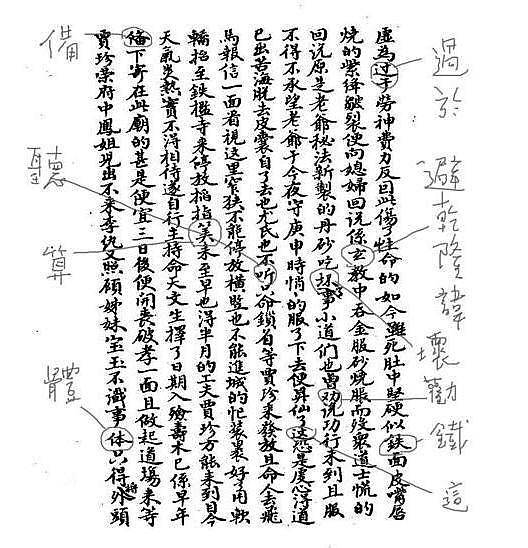 過於
避乾隆諱
壞
勸
鐵
這
虛為过于勞神費力反因此傷了性命的如今雖死肚中堅硬似鉄面皮嘴唇
燒的紫絳皺裂便向媳婦回说係玄教中吞金服砂燒服而殁衆道士慌的
回说原是老爺秘法新製的丹砂吃坏事小道們也曾劝说功行未到且服
不得不承望老爺于今夜守庚申時悄的服了下去便昇仙了这恐是虔心得道
已出苦海脱去皮囊自了去也尤氏也不听只命鎖着等賈珍来發放且命人去飛
馬報信一面看視这里窄狭不能停放横豎也不能進城的忙裝裹好了用軟
轎抬至鉄檻寺来停放掐指筭来至早也得半月的工夫賈珍方能来到目今
天氣炎熱實不得相待遂自行主持命天文生擇了日期入殮壽木已係早年
偹下寄在此廟的甚是便宜三日後便開喪破孝一面且做起道塲来等
賈珍榮府中鳳姐児出不来李纨又照顧姊妹宝玉不識事体只得将外頭
備
聽
算
體